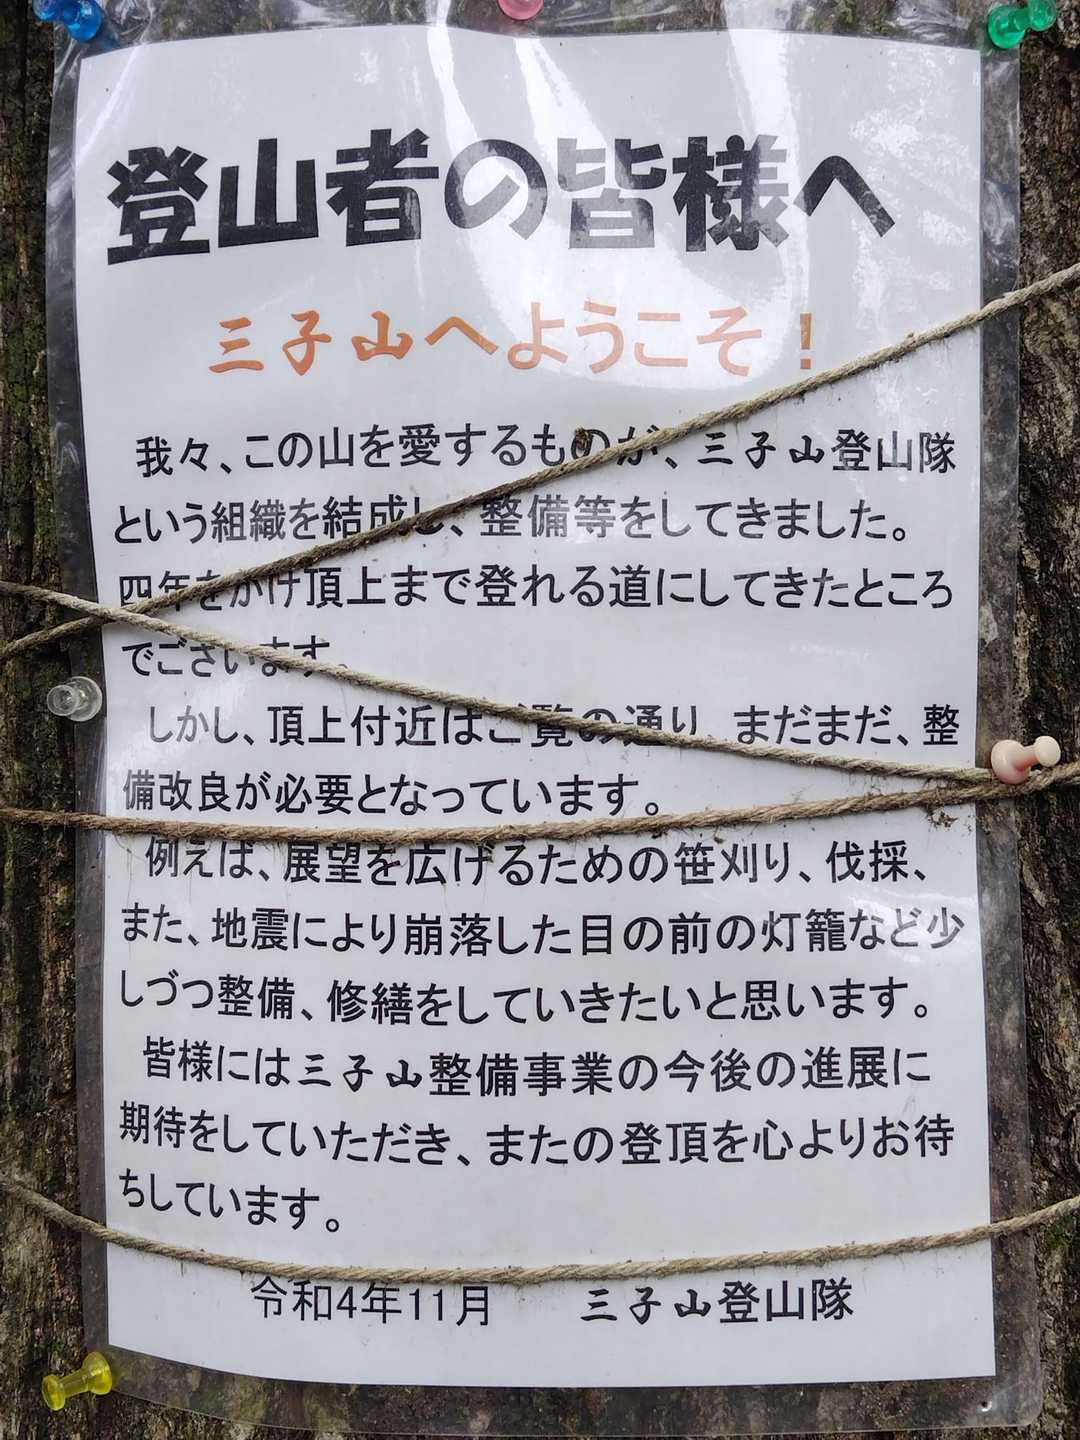 登山者の皆様へ
三子山へようこそ！
我々、この山を愛するものが、三子山登山隊
という組織を結成し、整備等をしてきました。
四年をかけ頂上まで登れる道にしてきたところ
でございます。
しかし、頂上付近はご覧の通り、まだまだ、整
備改良が必要となっています。
例えば、展望を広げるための笹刈り、伐採、
また、地震により崩落した目の前の灯籠など少
しづつ整備、修繕をしていきたいと思います。
皆様には三子山整備事業の今後の進展に
期待をしていただき、またの登頂を心よりお待
ちしています。
令和4年11月 三子山登山隊